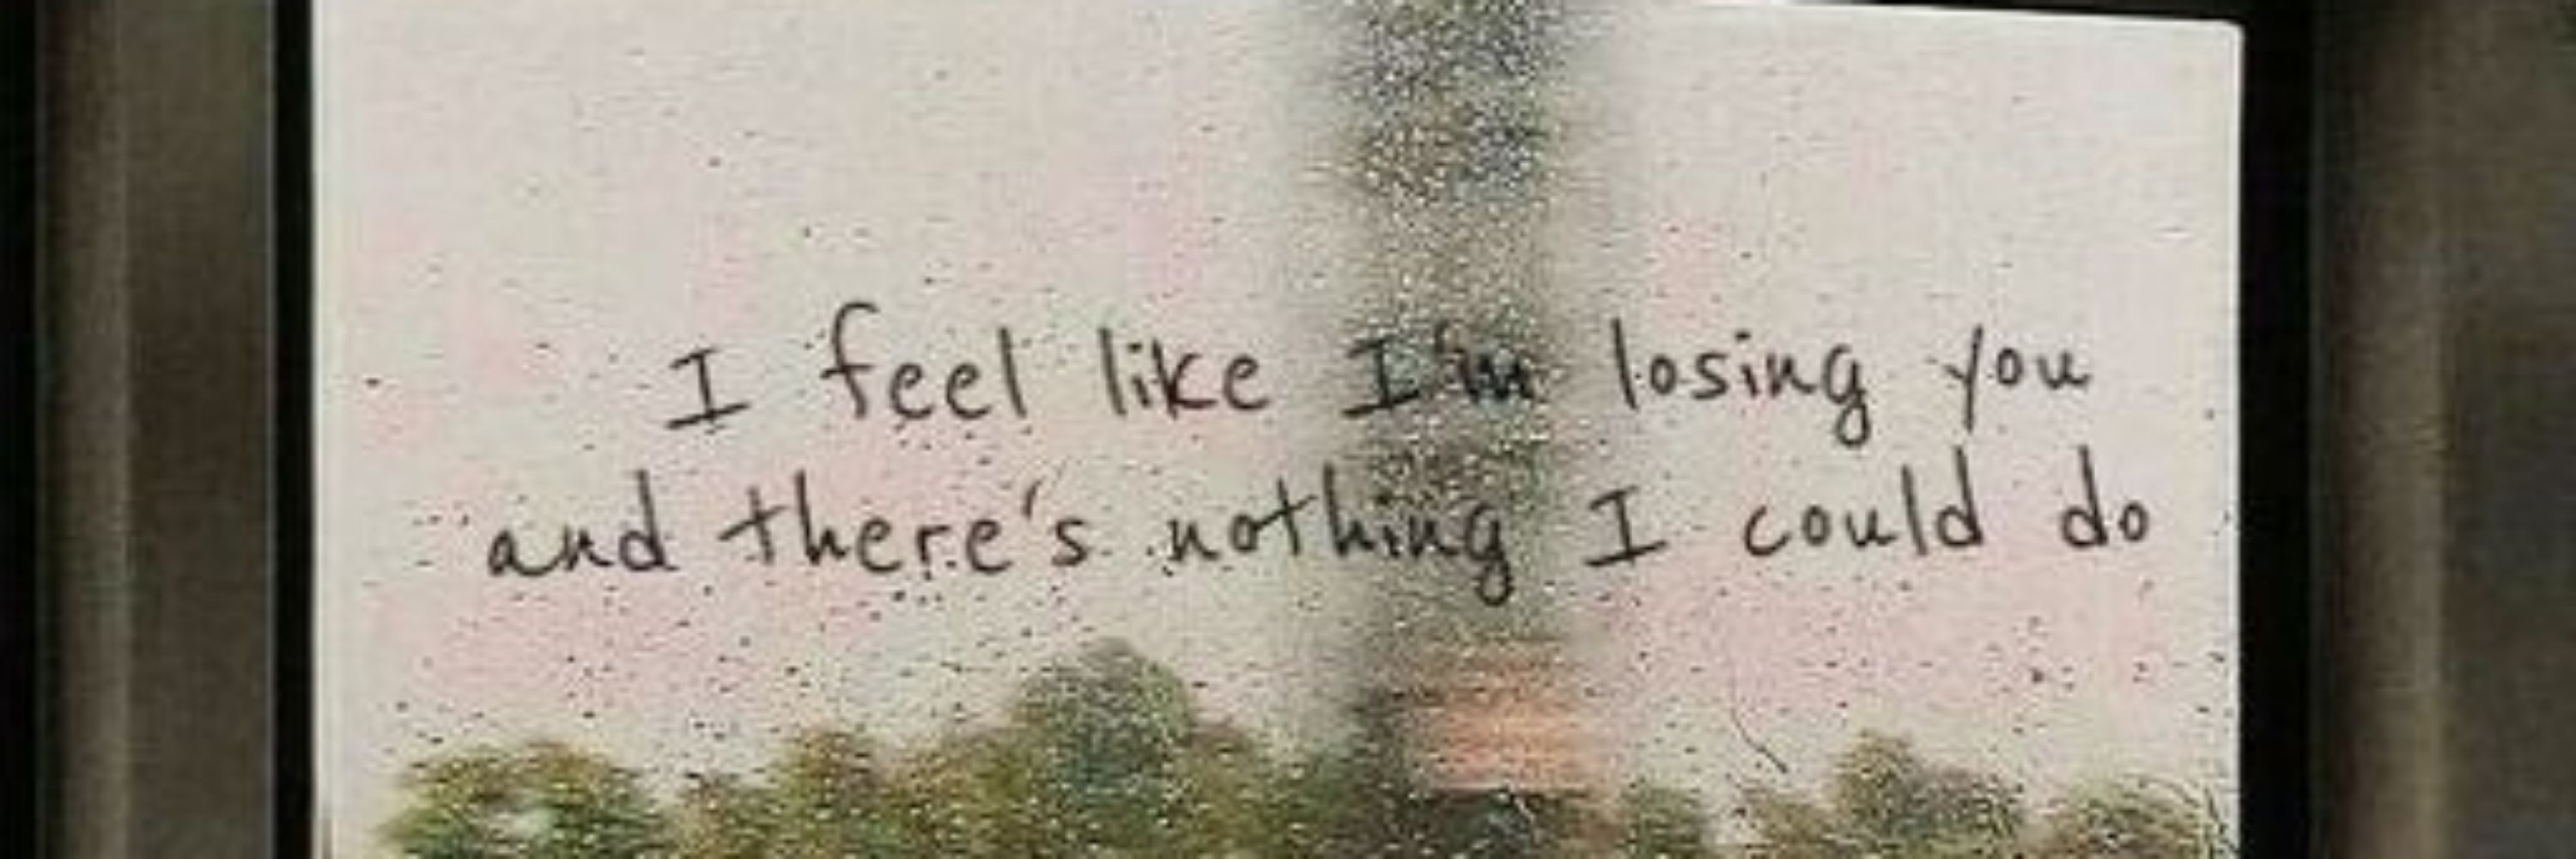 I feel like I'm losing you
and there's nothing I could do